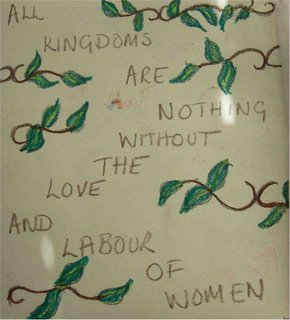 ALL
KINGDOMS
ARE
NOTHING
WITHOUT
THE
LOVE
AND
LABOUR
OF
WOMEN